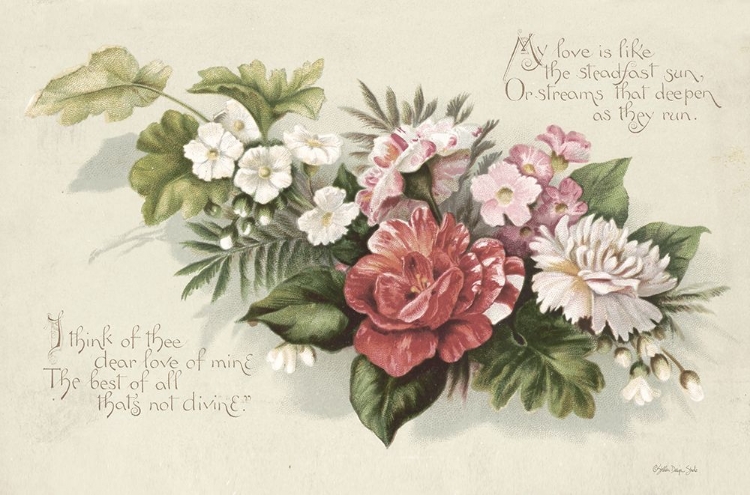 My love is like
the steadfast sun,
Or streams that deepen
as they run.
I think of thee
dear love of mine
The best of all
that's not divine."